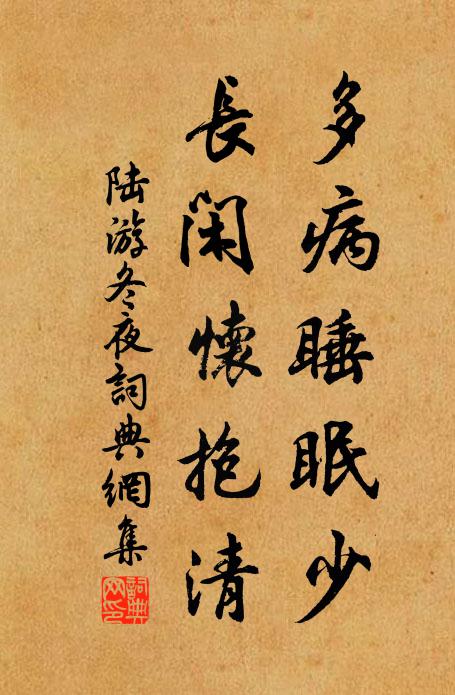 多病睡眠少
長閑懷抱清
陸游冬夜詞典網集
詞典网印